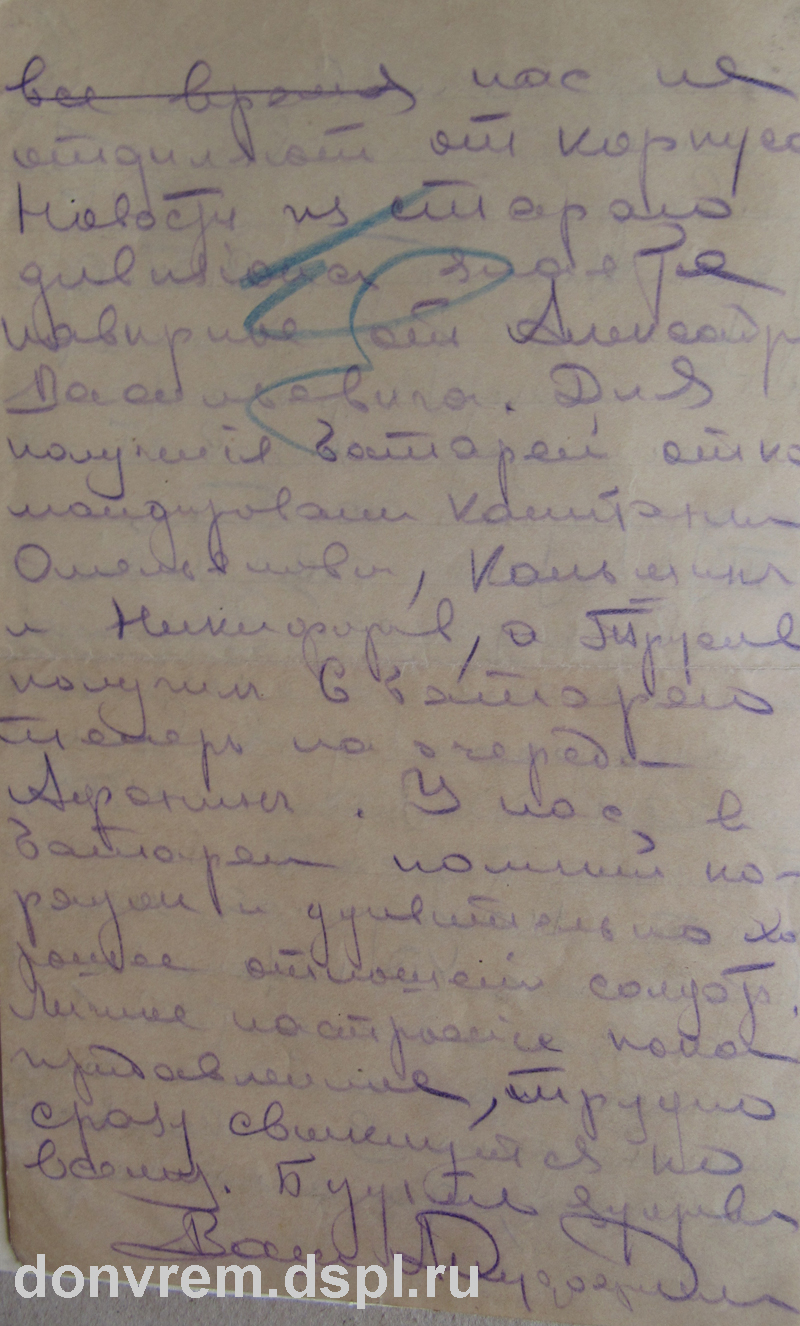 все время нас не
отделяют от корпуса
Новости из старого
дивизiона знаете
наверное от Александр
Васильевича. Для
полученiя батареи отко
мандированы капитаны
Омельянович,
и Никифоров, а Трусов
получил 6 батарею
теперь на очереди
Афонинъ. У нас, в
батареи полный по-
рядок и удивительно хо
рошее отношенiе солдатъ.
Личное настроенiе пока
придавленное, трудно
сразу свыкнуться ко
всему. Будьте здоровы
Ваш
donvrem.dspl.ru